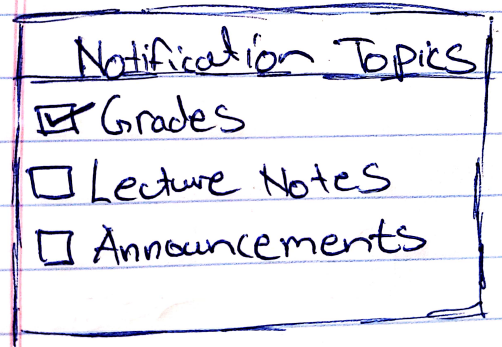 Notification Topics
Grades
Lecture Notes
Announcements